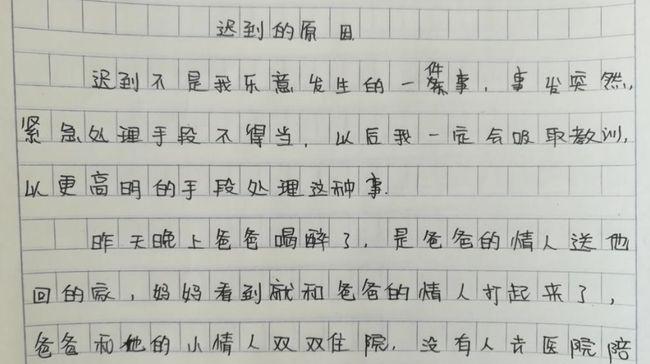 迟到的原因
迟到不是我乐意发生的一件事，事发突然，
紧急处理手段不得当，以后我一定会吸取教训，
以更高明的手段处理这种事.
昨天晚上爸爸喝醉了，是爸爸的情人送他
回的家，妈妈看到就和爸爸的情人打起来了，
爸爸和他的小情人双双住院，没有人去医院陪